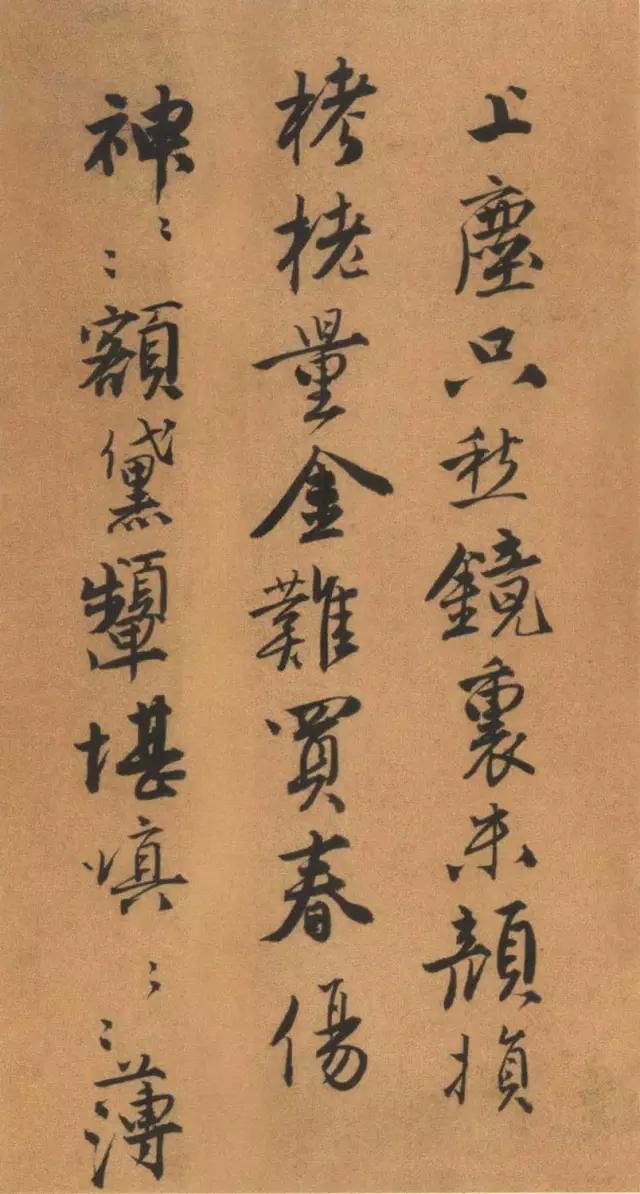 上塵只愁鏡裏朱顏損
栲栳量金難買春傷
神〻〻額黛顰堪慎〻〻薄